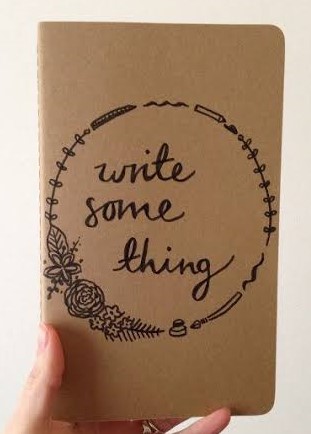 write
some
thing